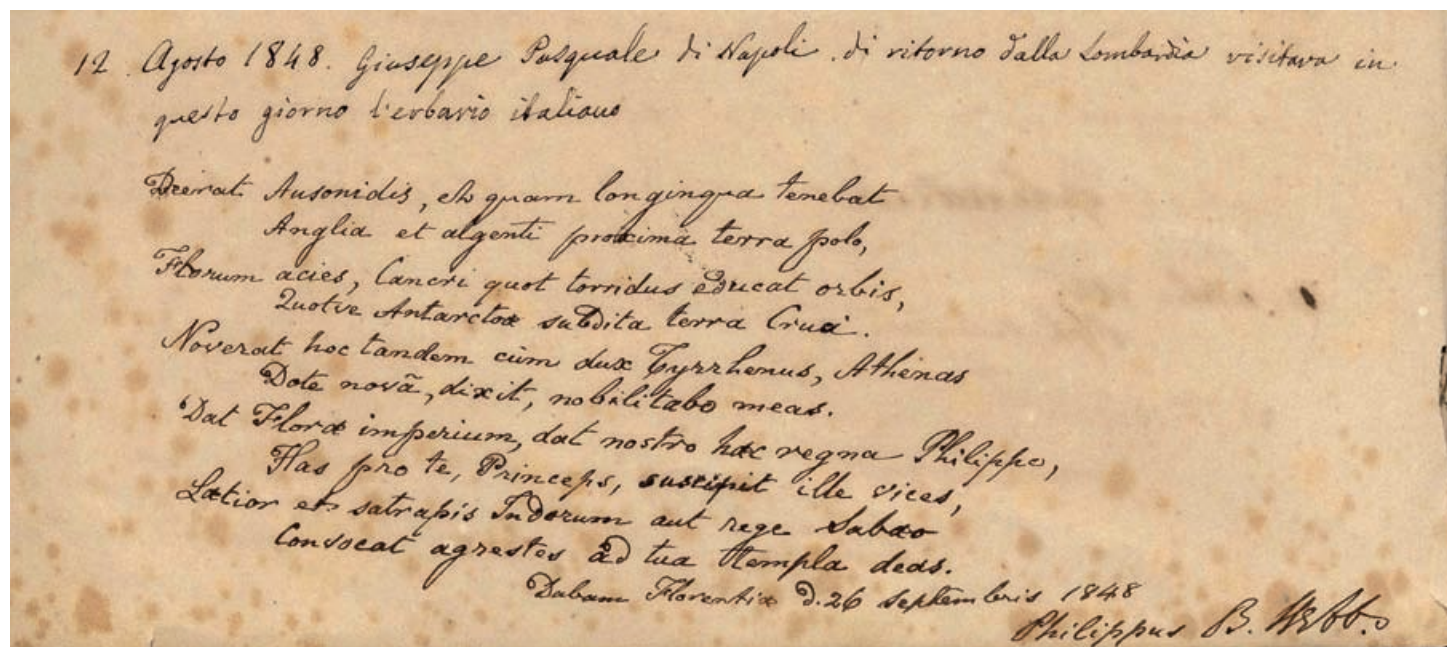 12. Agosto 1848. Giuseppe Pasquale di Napoli. di ritorno dalla Lombardia visitava in
questo giorno l'erbario italiano
Deerat Ausonidis, et quam longinqua tenebat
Anglia et algenti proxima terra polo,
Florum acies, Cancri quot torridus educat orbis,
Quotve Antarctoæ subdita terra Cruci.
Noverat hoc tandem cùm dux Tyrrhenus, Athenas
Dote novâ, dixit, nobilitabo meas.
Dat Floræ imperium, dat nostro hæc regna Philippo,
Has pro te, Princeps, suscipit ille vices,
Lætior et satrapis Indorum aut rege Sabæo
Convocat agrestes ad tua templa deas.
Dabam Florentiæ d. 26 Septembris 1848
Philippus B. Webb.